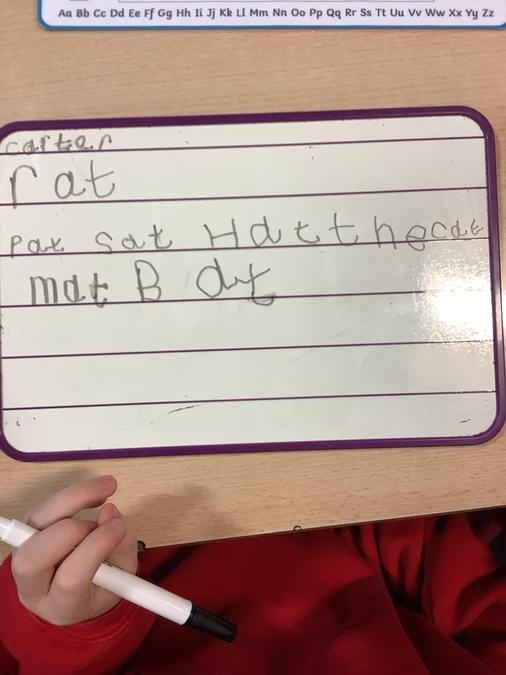 Aa Bb Cc Dd Ee Ff Gg Hh Ii Jj Kk Ll Mm Nn Oo Pp Qq Rr Ss Tt Uu Vv Ww Xx Yy Zz
carter
rat
Pat Sat Hat the cat
mat B at